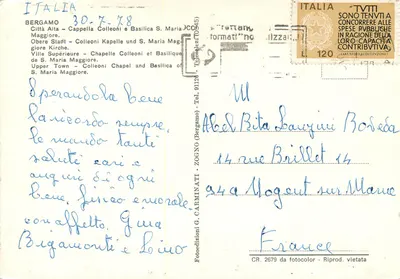 ITALIA
30-7-78
BERGAMO
Città Alta - Cappella Colleoni e Basilica S. Maria
Maggiore.
Obere Stadt - Colleoni Kapelle und S. Maria Mag-
giore Kirche.
Ville Supérieure - Chapelle Colleoni et Basilique
de S. Maria Maggiore.
Upper Town - Chapel Colleoni and Basilica of
S. Maria Maggiore.
Sperandola bene
la ricordo sempre,
le mando tanti
saluti cari e
auguri di ogni
bene, fisico e morale.
con affetto, Gina
Bigamonti e Lino
Fotoedizioni G. CARMINATI - ZOGNO (Bergamo) - Tel. 91129
ITALIA
"TUTTI
SONO TENUTI A
CONCORRERE ALLE
SPESE PUBBLICHE
IN RAGIONE DELLA
LORO CAPACITÀ
CONTRIBUTIVA„
L.120
M
Abel Rita
14 rue Brillet 14
94a Nogent sur Marne
France
CR. 2679 da fotocolor - Riprod. vietata